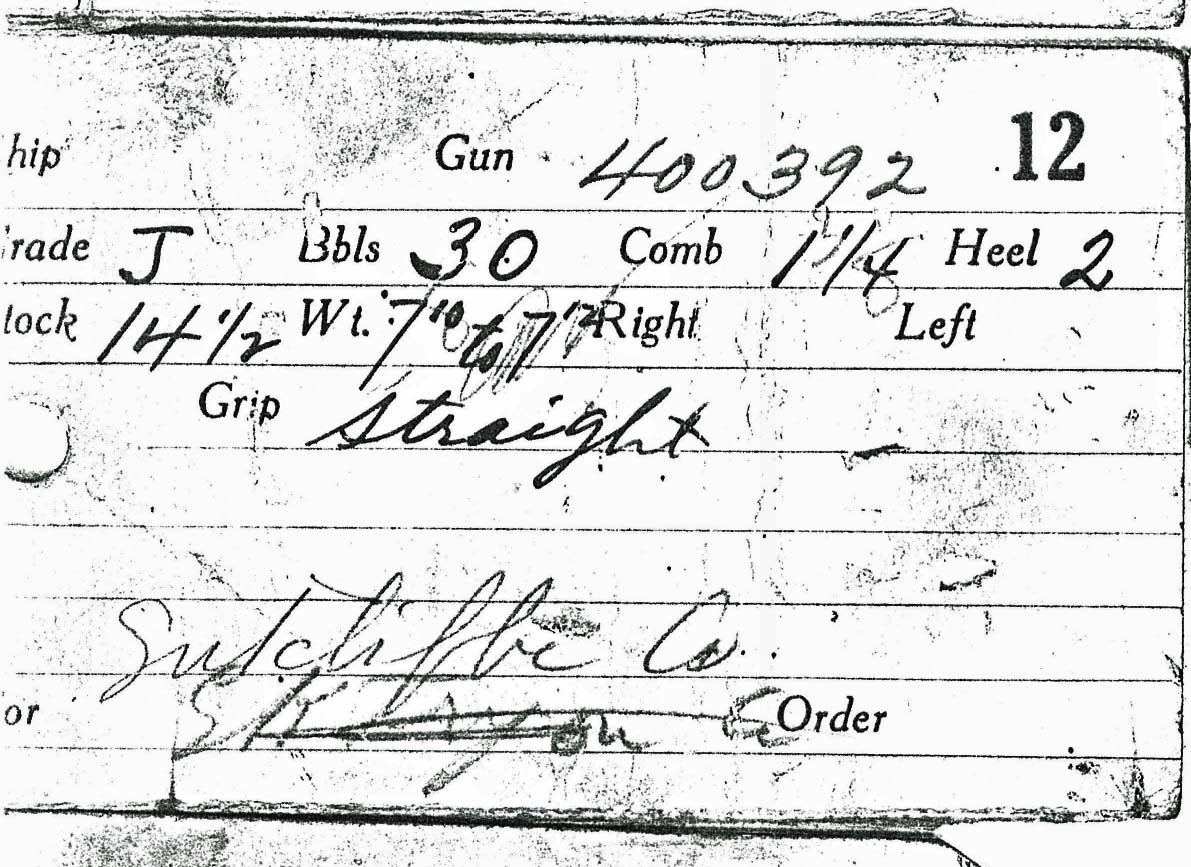 hip Gun 400392 12
rade J Bbls 30 Comb 1 1/4 Heel 2
tock 14 1/2 Wt. 7 10 to 7 12 Right Left
Grip straight
Sutcliffe Co.
or Order